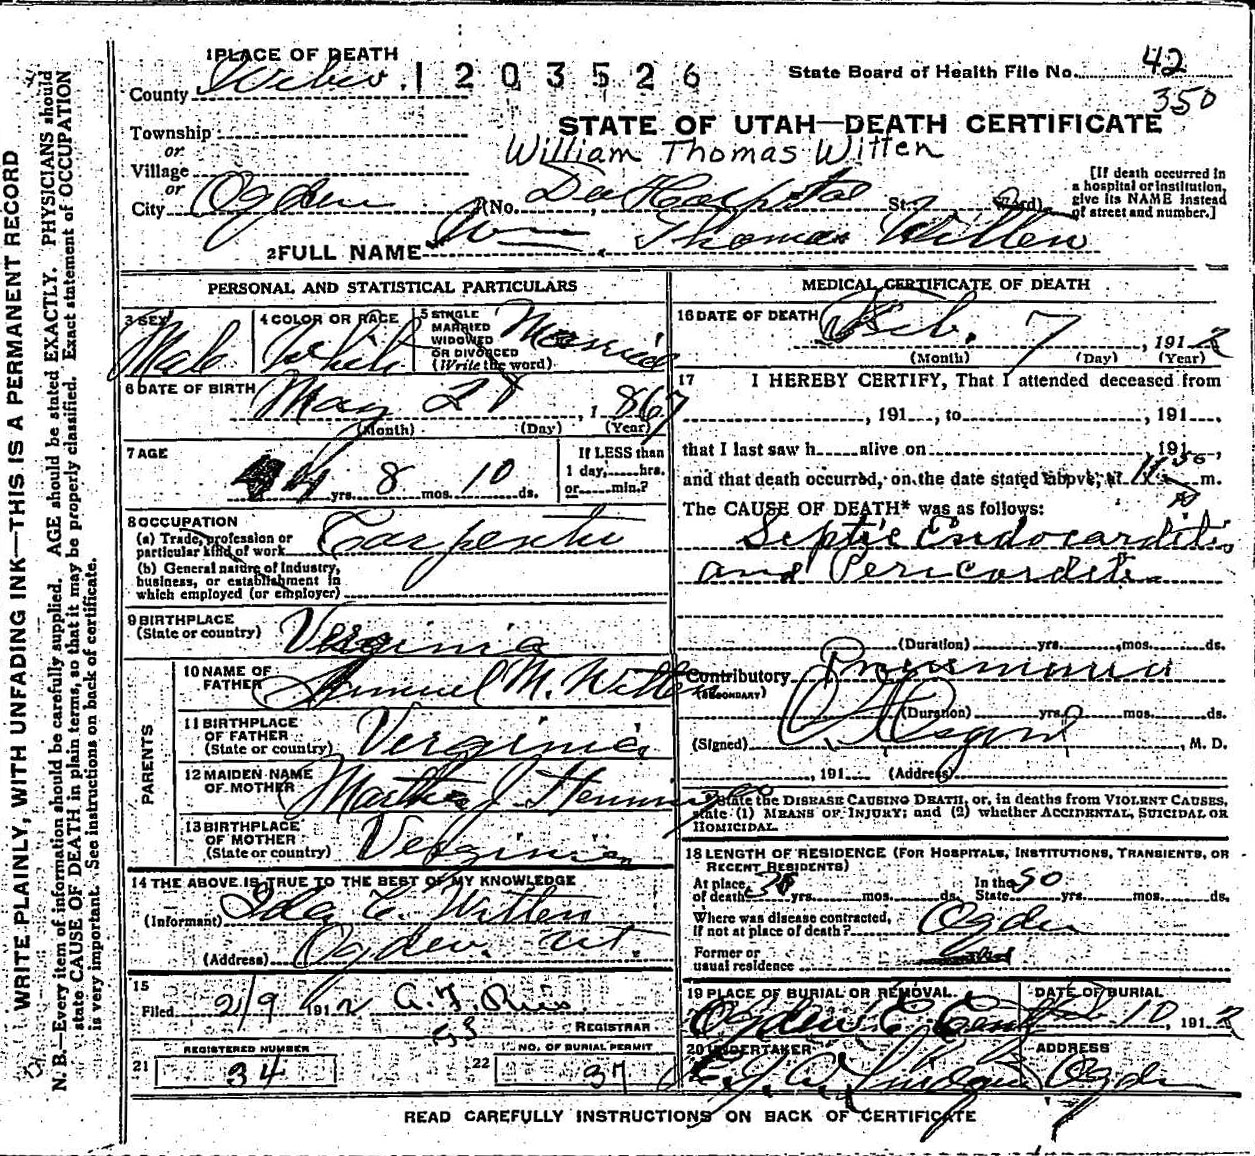 WRITE PLAINLY, WITH UNFADING INK—THIS IS A PERMANENT RECORD
N. B.—Every item of information should be carefully supplied. AGE should be stated EXACTLY. PHYSICIANS should
state CAUSE OF DEATH in plain terms, so that it may be properly classified. Exact statement of OCCUPATION
is very important. See instructions on back of certificate.
1 PLACE OF DEATH
County Weber 1203526
State Board of Health File No. 42
350
Township
or
Village
or
City Ogden
STATE OF UTAH—DEATH CERTIFICATE
William Thomas Witten
(No. Dee Hospital St. Ward)
[If death occurred in
a hospital or institution,
give its NAME instead
of street and number.]
2 FULL NAME Wm Thomas Witten
PERSONAL AND STATISTICAL PARTICULARS
3 SEX Male
4 COLOR OR RACE White
5 SINGLE
MARRIED
WIDOWED
OR DIVORCED
(Write the word)
Married
6 DATE OF BIRTH May 28, 1867
(Month) (Day) (Year)
7 AGE
44 yrs. 8 mos. 10 ds.
If LESS than
1 day, hrs.
or min.?
8 OCCUPATION
(a) Trade, profession or
particular kind of work Carpenter
(b) General nature of Industry,
business, or establishment in
which employed (or employer)
9 BIRTHPLACE
(State or country) Verginia
PARENTS
10 NAME OF
FATHER Samuel M. Witten
11 BIRTHPLACE
OF FATHER
(State or country) Verginia
12 MAIDEN NAME
OF MOTHER Martha J
13 BIRTHPLACE
OF MOTHER
(State or country) Verginia
14 THE ABOVE IS TRUE TO THE BEST OF MY KNOWLEDGE
(Informant) Ida E. Witten
(Address) Ogden Ut
15
Filed 2/9 1912
REGISTRAR
REGISTERED NUMBER
21 34
NO. OF BURIAL PERMIT
22 37
MEDICAL CERTIFICATE OF DEATH
16 DATE OF DEATH Feb. 7, 1912
(Month) (Day) (Year)
17 I HEREBY CERTIFY, That I attended deceased from
, 191 , to , 191 ,
that I last saw h alive on 191 ,
and that death occurred, on the date stated above, at m.
The CAUSE OF DEATH* was as follows:
Septic Endocarditis
and Pericarditis
(Duration) yrs. mos. ds.
Contributory Pneumonia
(SECONDARY)
(Duration) yrs. mos. ds.
(Signed) , M. D.
, 191 (Address)
*State the DISEASE CAUSING DEATH, or, in deaths from VIOLENT CAUSES,
state (1) MEANS OF INJURY; and (2) whether ACCIDENTAL, SUICIDAL OR
HOMICIDAL.
18 LENGTH OF RESIDENCE (FOR HOSPITALS, INSTITUTIONS, TRANSIENTS, OR
RECENT RESIDENTS)
At place
of death yrs. mos. ds.
In the
State yrs. mos. ds.
Where was disease contracted,
If not at place of death? Ogden
Former or
usual residence
19 PLACE OF BURIAL OR REMOVAL
Ogden
DATE OF BURIAL
10, 1912
20 UNDERTAKER
ADDRESS
Ogden
READ CAREFULLY INSTRUCTIONS ON BACK OF CERTIFICATE